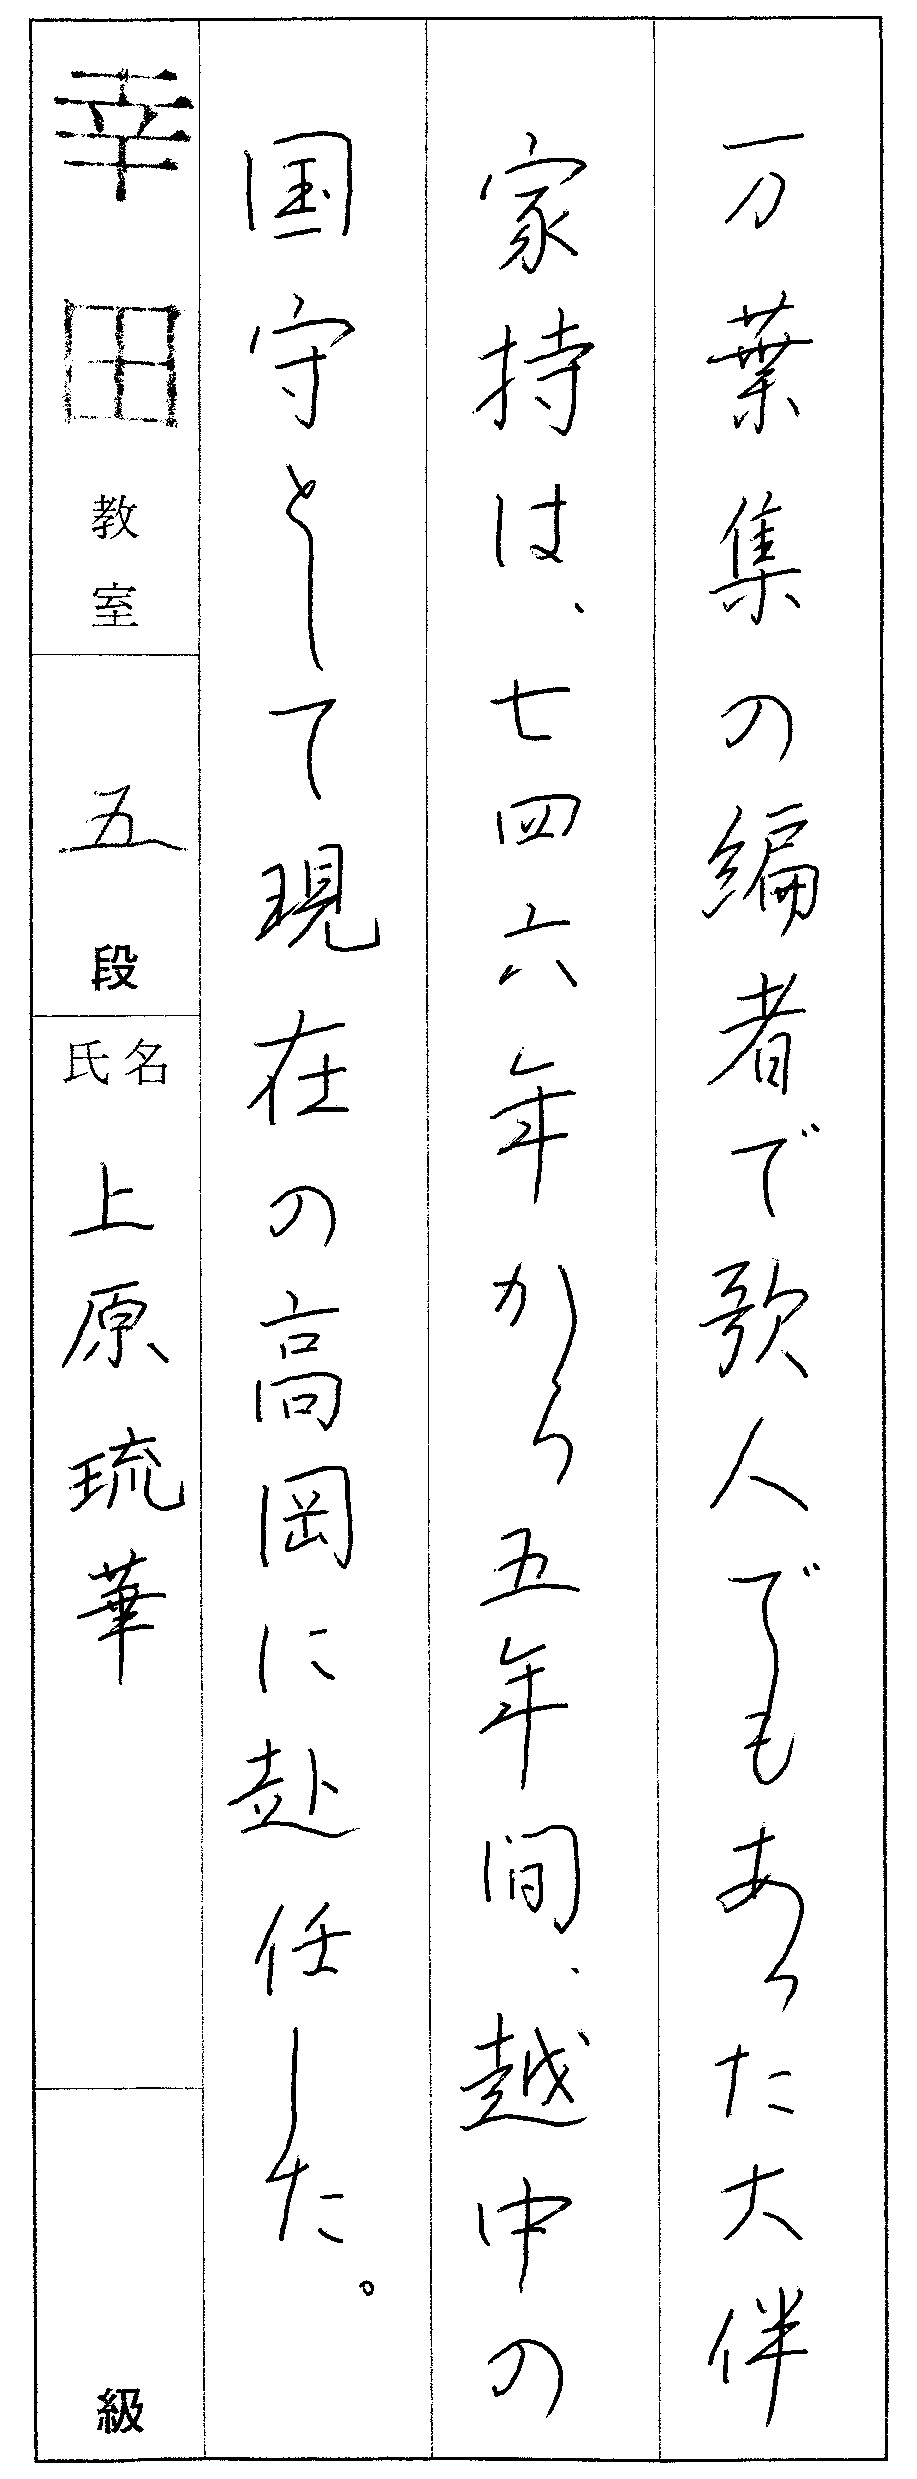 万葉集の編者で歌人でもあった大伴
家持は、七四六年から五年間、越中の
国守として現在の高岡に赴任した。
幸田教室
五段
氏名 上原琉華
級